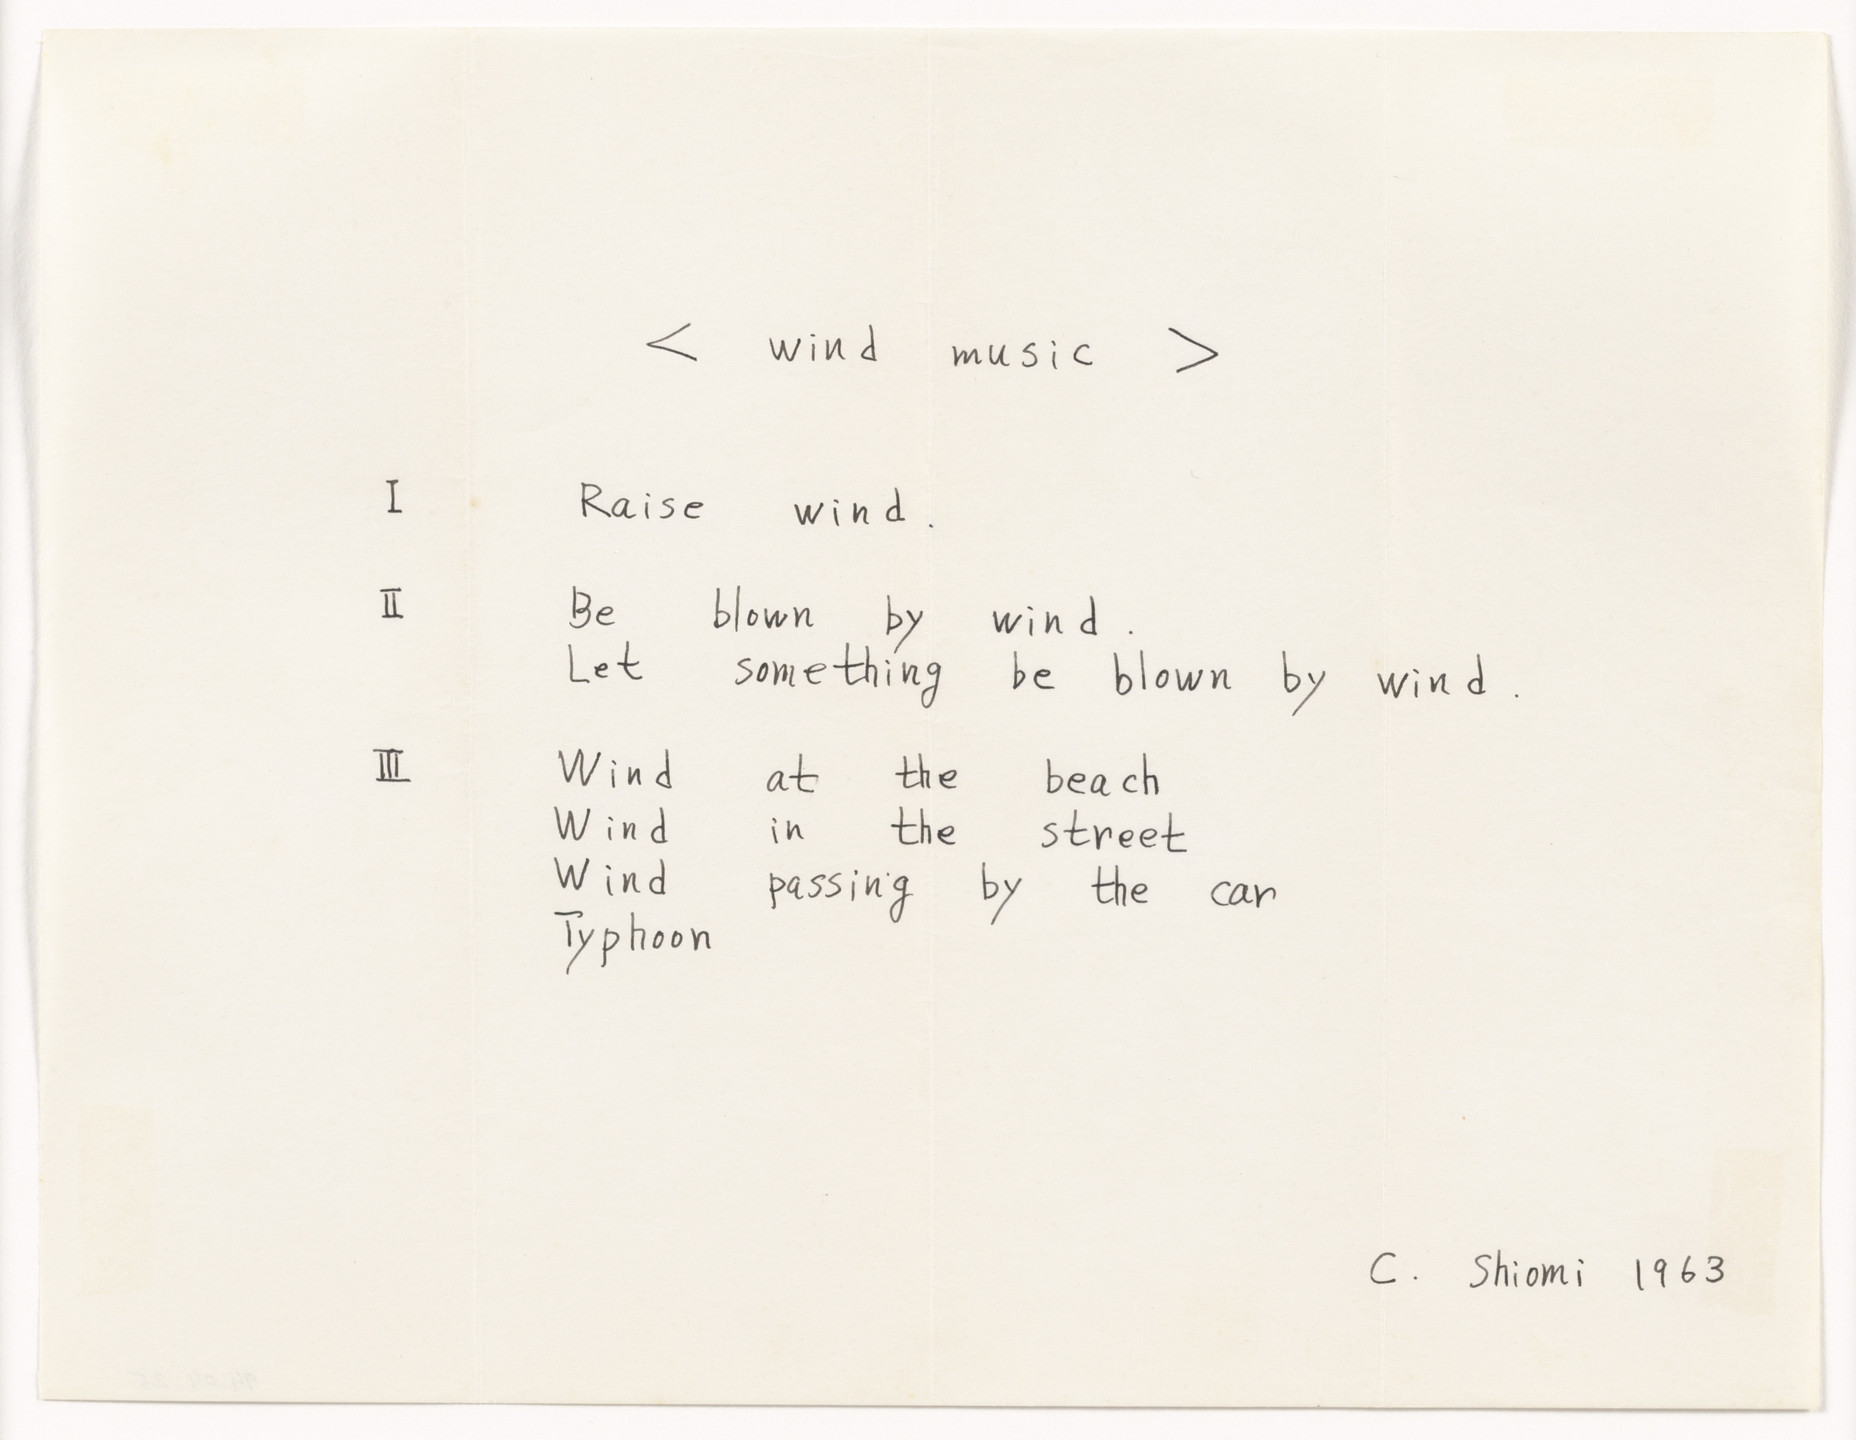 < wind music >
I Raise wind.
II Be blown by wind.
Let something be blown by wind.
III Wind at the beach
Wind in the street
Wind passing by the car
Typhoon
C. Shiomi 1963